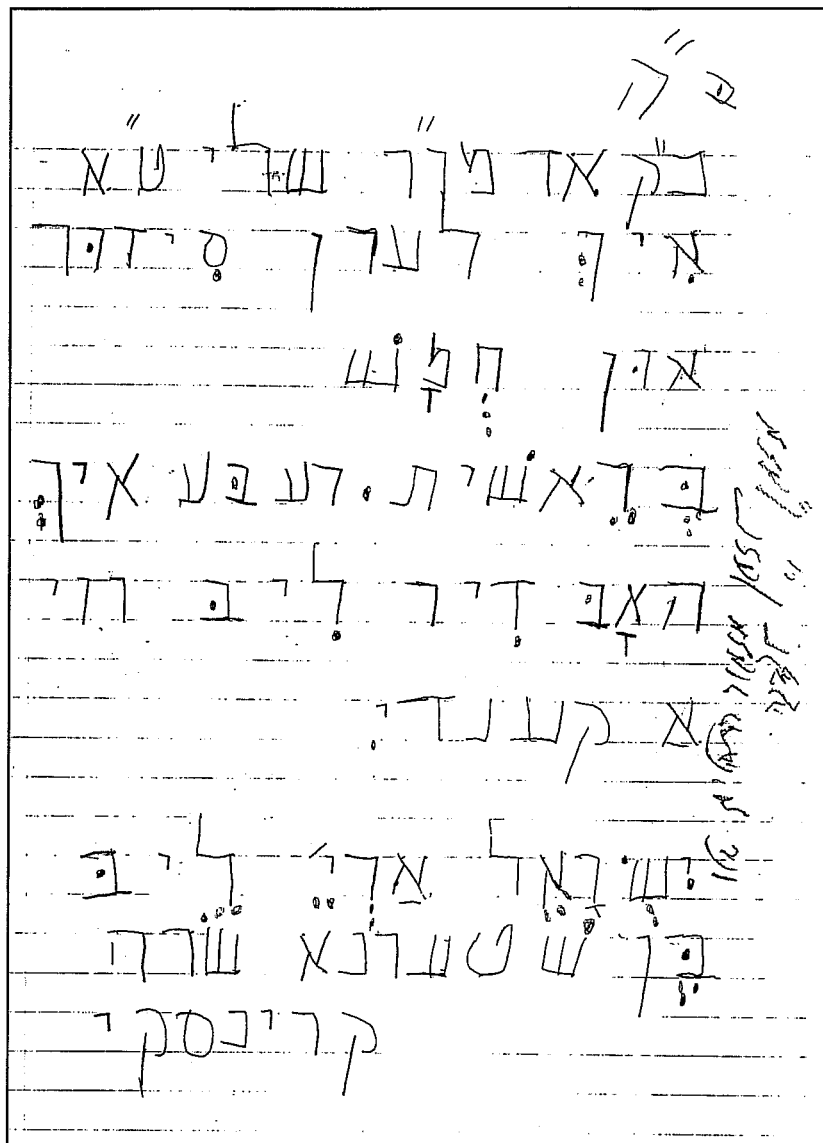 ב"ה
כ"ק אדמו"ר שליט"א
איך לערן סידור
און חמש
בראשית. רעבע איך
האב דיר ליב ווי
א קענדי
ישראל ארי' ליב
בן שטערנא שרה
קרינסקי